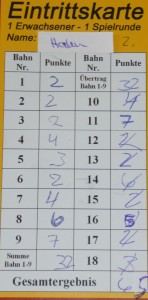 Eintrittskarte
1 Erwachsener - 1 Spielrunde
Name: 2.
Bahn Nr. Punkte Bahn Nr. Punkte
1 2 Übertrag Bahn 1-9 32
2 2 10 4
3 2 11 7
4 4 12 2
5 3 13 2
6 2 14 6
7 4 15 2
8 6 16 5
9 7 17 2
Summe Bahn 1-9 32 18 3
Gesamtergebnis 65